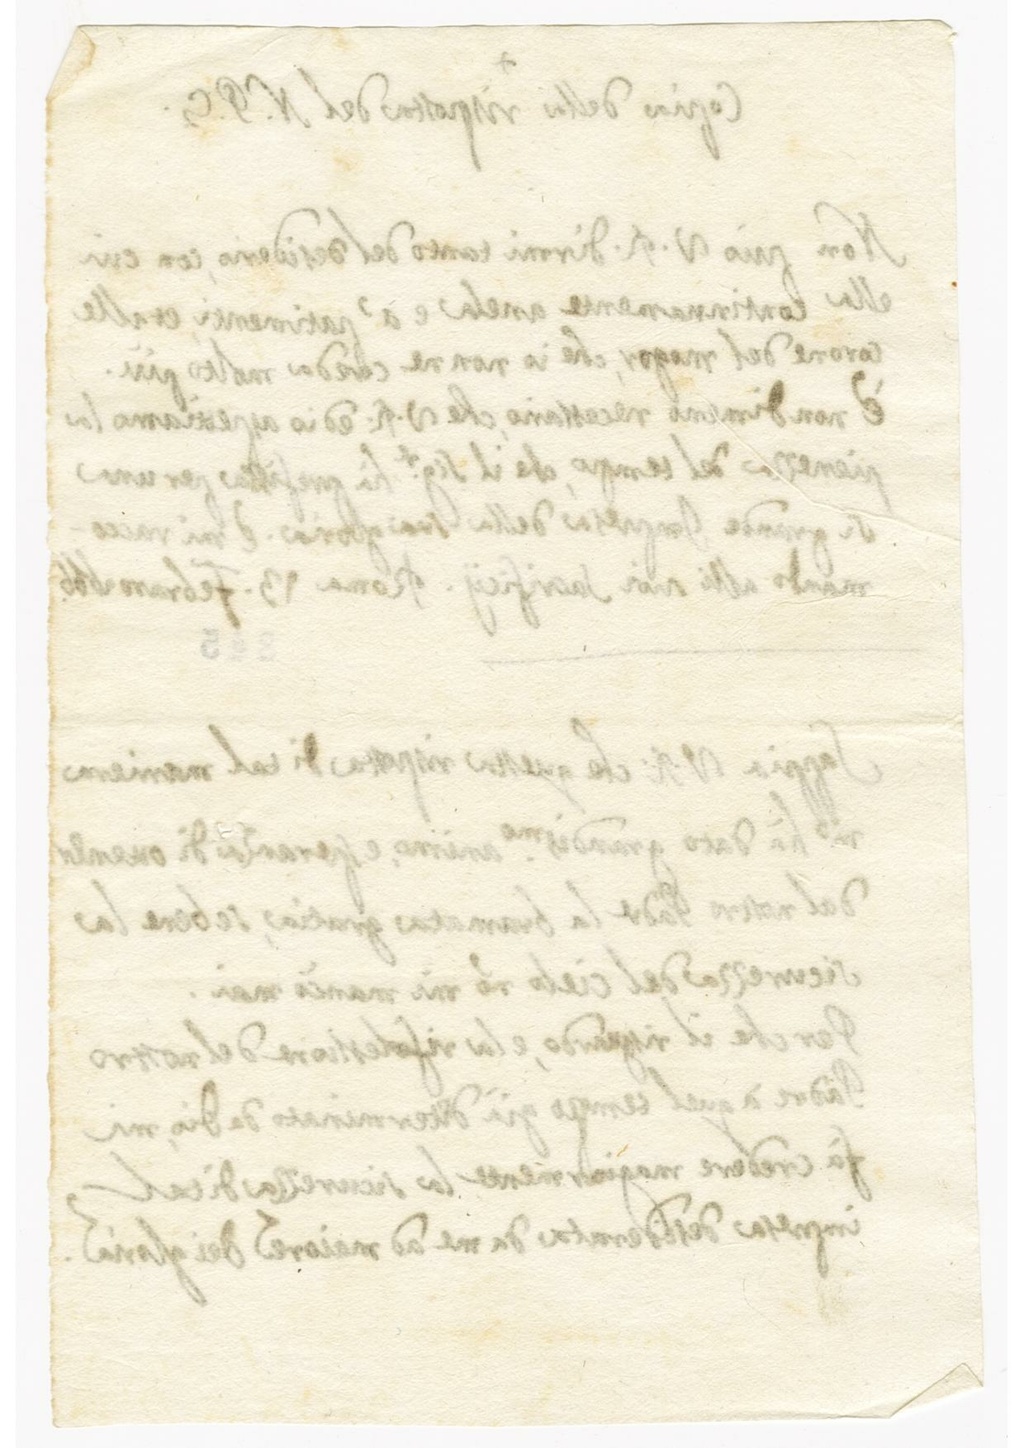 +
Copia della risposta del N. P. G.
Non può V. R. dirmi tanto del desiderio, con cui
ella continuamente anela e à patimenti, et alle
corone del magor, che io non ne creda molto più.
È nondimeno necessario, che V. R. ed io aspettiamo la
pienezza del tempo, che il Sig.re hà prefissa per una
si grande Impresa della sua gloria. E mi racco-
mando alli suoi sacrificij. Roma 13. Febraro
Sappia V. R. che questa risposta di tal maniera
m'hà dato grandiss.mo animo, e speranza di ottener
dal nostro Padre la bramata gratia, se bene la
sicurezza del cielo nõ mi mancò mai.
Perche il riguardo, e la riflessione del nostro
Padre à quel tempo già determinato da Dio, mi
fà credere maggiormente la sicurezza di tal
impresa desiderata da me ad maiorẽ Dei gloriã.